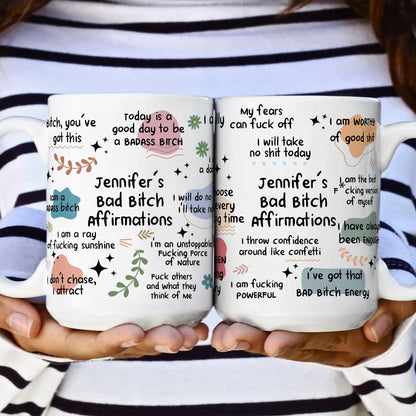 Bitch, you've
got this
Today is a
good day to be
a BADASS BITCH
Jennifer's
Bad Bitch
Affirmations
I am a
badass bitch
I will do
I am a ray
of fucking sunshine
I'm an unstoppable
Fucking Force
of Nature
I don't chase,
I attract
Fuck others
and what they
think of me
My fears
can fuck off
I am WORTHY
of good shit
I will take
no shit today
I am the best
f*cking version
of myself
Jennifer's
Bad Bitch
Affirmations
I have always
been enough
I throw confidence
around like confetti
I am fucking
POWERFUL
I've got that
BAD Bitch Energy